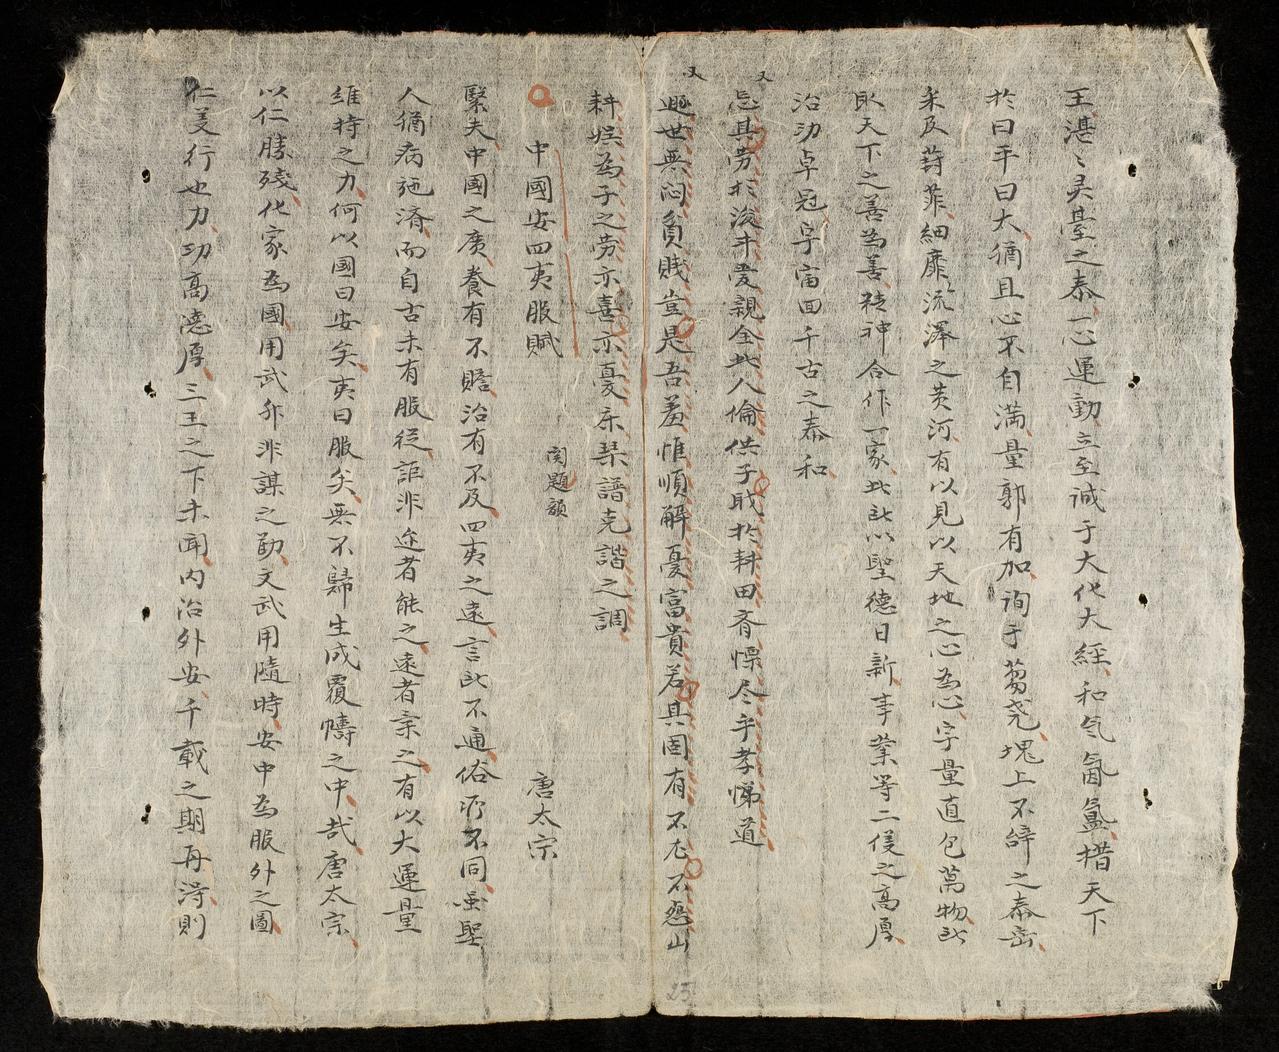 王湛〻灵臺之泰一心運動立至诚于大化大經和気氤氳措天下
於曰平曰大猶且心不自满量郭有加询于蒭尧塊上不辞之泰岳
采及葑菲細靡流澤之黄河有以見以天地之心為心字量直包萬物此
取天下之善為善精神合作一家此所以聖德日新事業等二儀之高厚
治功卓冠宇宙囬千古之泰和
又
忘其劳於浚井爱親全此人倫供子職於耕田斉慄尽乎孝悌道
又
遯世無闷貧賎豈是吾羞惟順解憂富貴若其固有不尤不怨山
耕娛為子之劳亦喜亦憂床琹譜克諧之調
中國安四夷服賦
関題額
唐太宗
緊夫中國之廣養有不贍治有不及四夷之遠言此不通俗所不同虽聖
人猶病施济而自古未有服從詎非近者能之遠者柔之有以大運量
維持之力何以國曰安矣夷曰服矣無不歸生成覆幬之中哉唐太宗
以仁勝殘化家為國用武非謀之勛文武用隨時安中為服外之圖
仁義行也力功高德厚三王之下未聞内治外安千載之期再得則
23